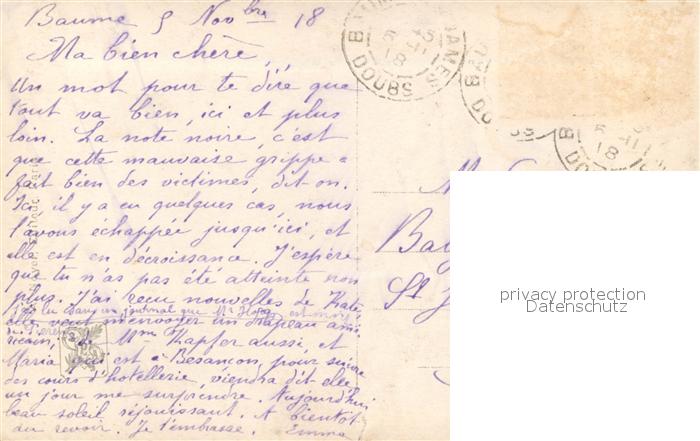 Baume 5 Novbre 18
Ma bien chère,
Un mot pour te dire que
tout va bien, ici et plus
loin. La note noire, c'est
que cette mauvaise grippe a
fait bien des victimes, dit on.
Ici, il y a eu quelques cas, nous
l'avons échappée jusqu'ici, et
elle est en décroissance. J'espère
que tu n'as pas été atteinte non
plus. J'ai reçu nouvelles de Kate
journal que Mr est mort
elle veut m'envoyer un drapeau amé
ricain, Mme Kapfer aussi et
Maria qui est à Besançon, pour suivre
des cours d'hotellerie, viendra dit elle
un jour me surprendre. Aujourd'hui
beau soleil réjouissant. A bientôt
au revoir. Je t'embrasse. Emma
DAMES
DOUBS
5 -11
18
B
DOUBS
B
18
M.
Bau
St
privacy protection
Datenschutz